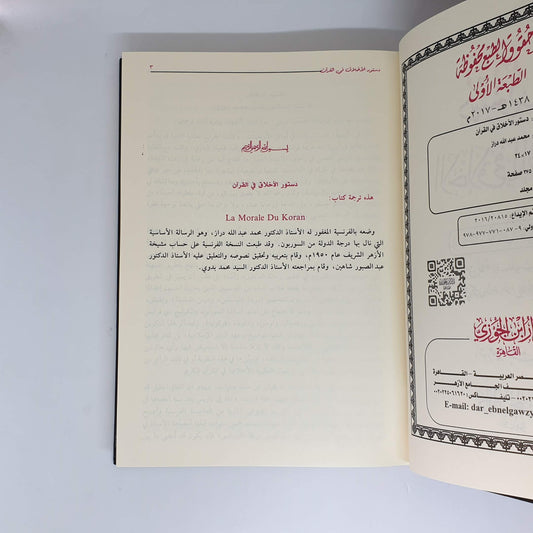 حقوق الطبع محفوظة
الطبعة الأولى
١٤٣٨هـ - ٢٠١٧م
دستور الأخلاق في القرآن
محمد عبد الله دراز
١٧×٢٤
صفحة
مجلد
م الإيداع: ٢٠١٦/٢٠٨١٥
٩٧٨-٩٧٧-٧٧١-٠٨٧-٩
ابن الجوزي
القاهرة
مصر العربية - القاهرة
خلف الجامع الأزهر
E-mail: dar_ebnelgawzy
دستور الأخلاق في القرآن
٣
بسم الله الرحمن الرحيم
دستور الأخلاق في القرآن
هذه ترجمة كتاب:
La Morale Du Koran
وضعه بالفرنسية المغفور له الأستاذ الدكتور محمد عبد الله دراز، وهو الرسالة الأساسية
التي نال بها درجة الدولة من السوربون. وقد طبعت النسخة الفرنسية على حساب مشيخة
الأزهر الشريف عام ١٩٥٠م، وقام بتعريبه وتحقيق نصوصه والتعليق عليه الأستاذ الدكتور
عبد الصبور شاهين، وقام بمراجعته الأستاذ الدكتور السيد محمد بدوي.